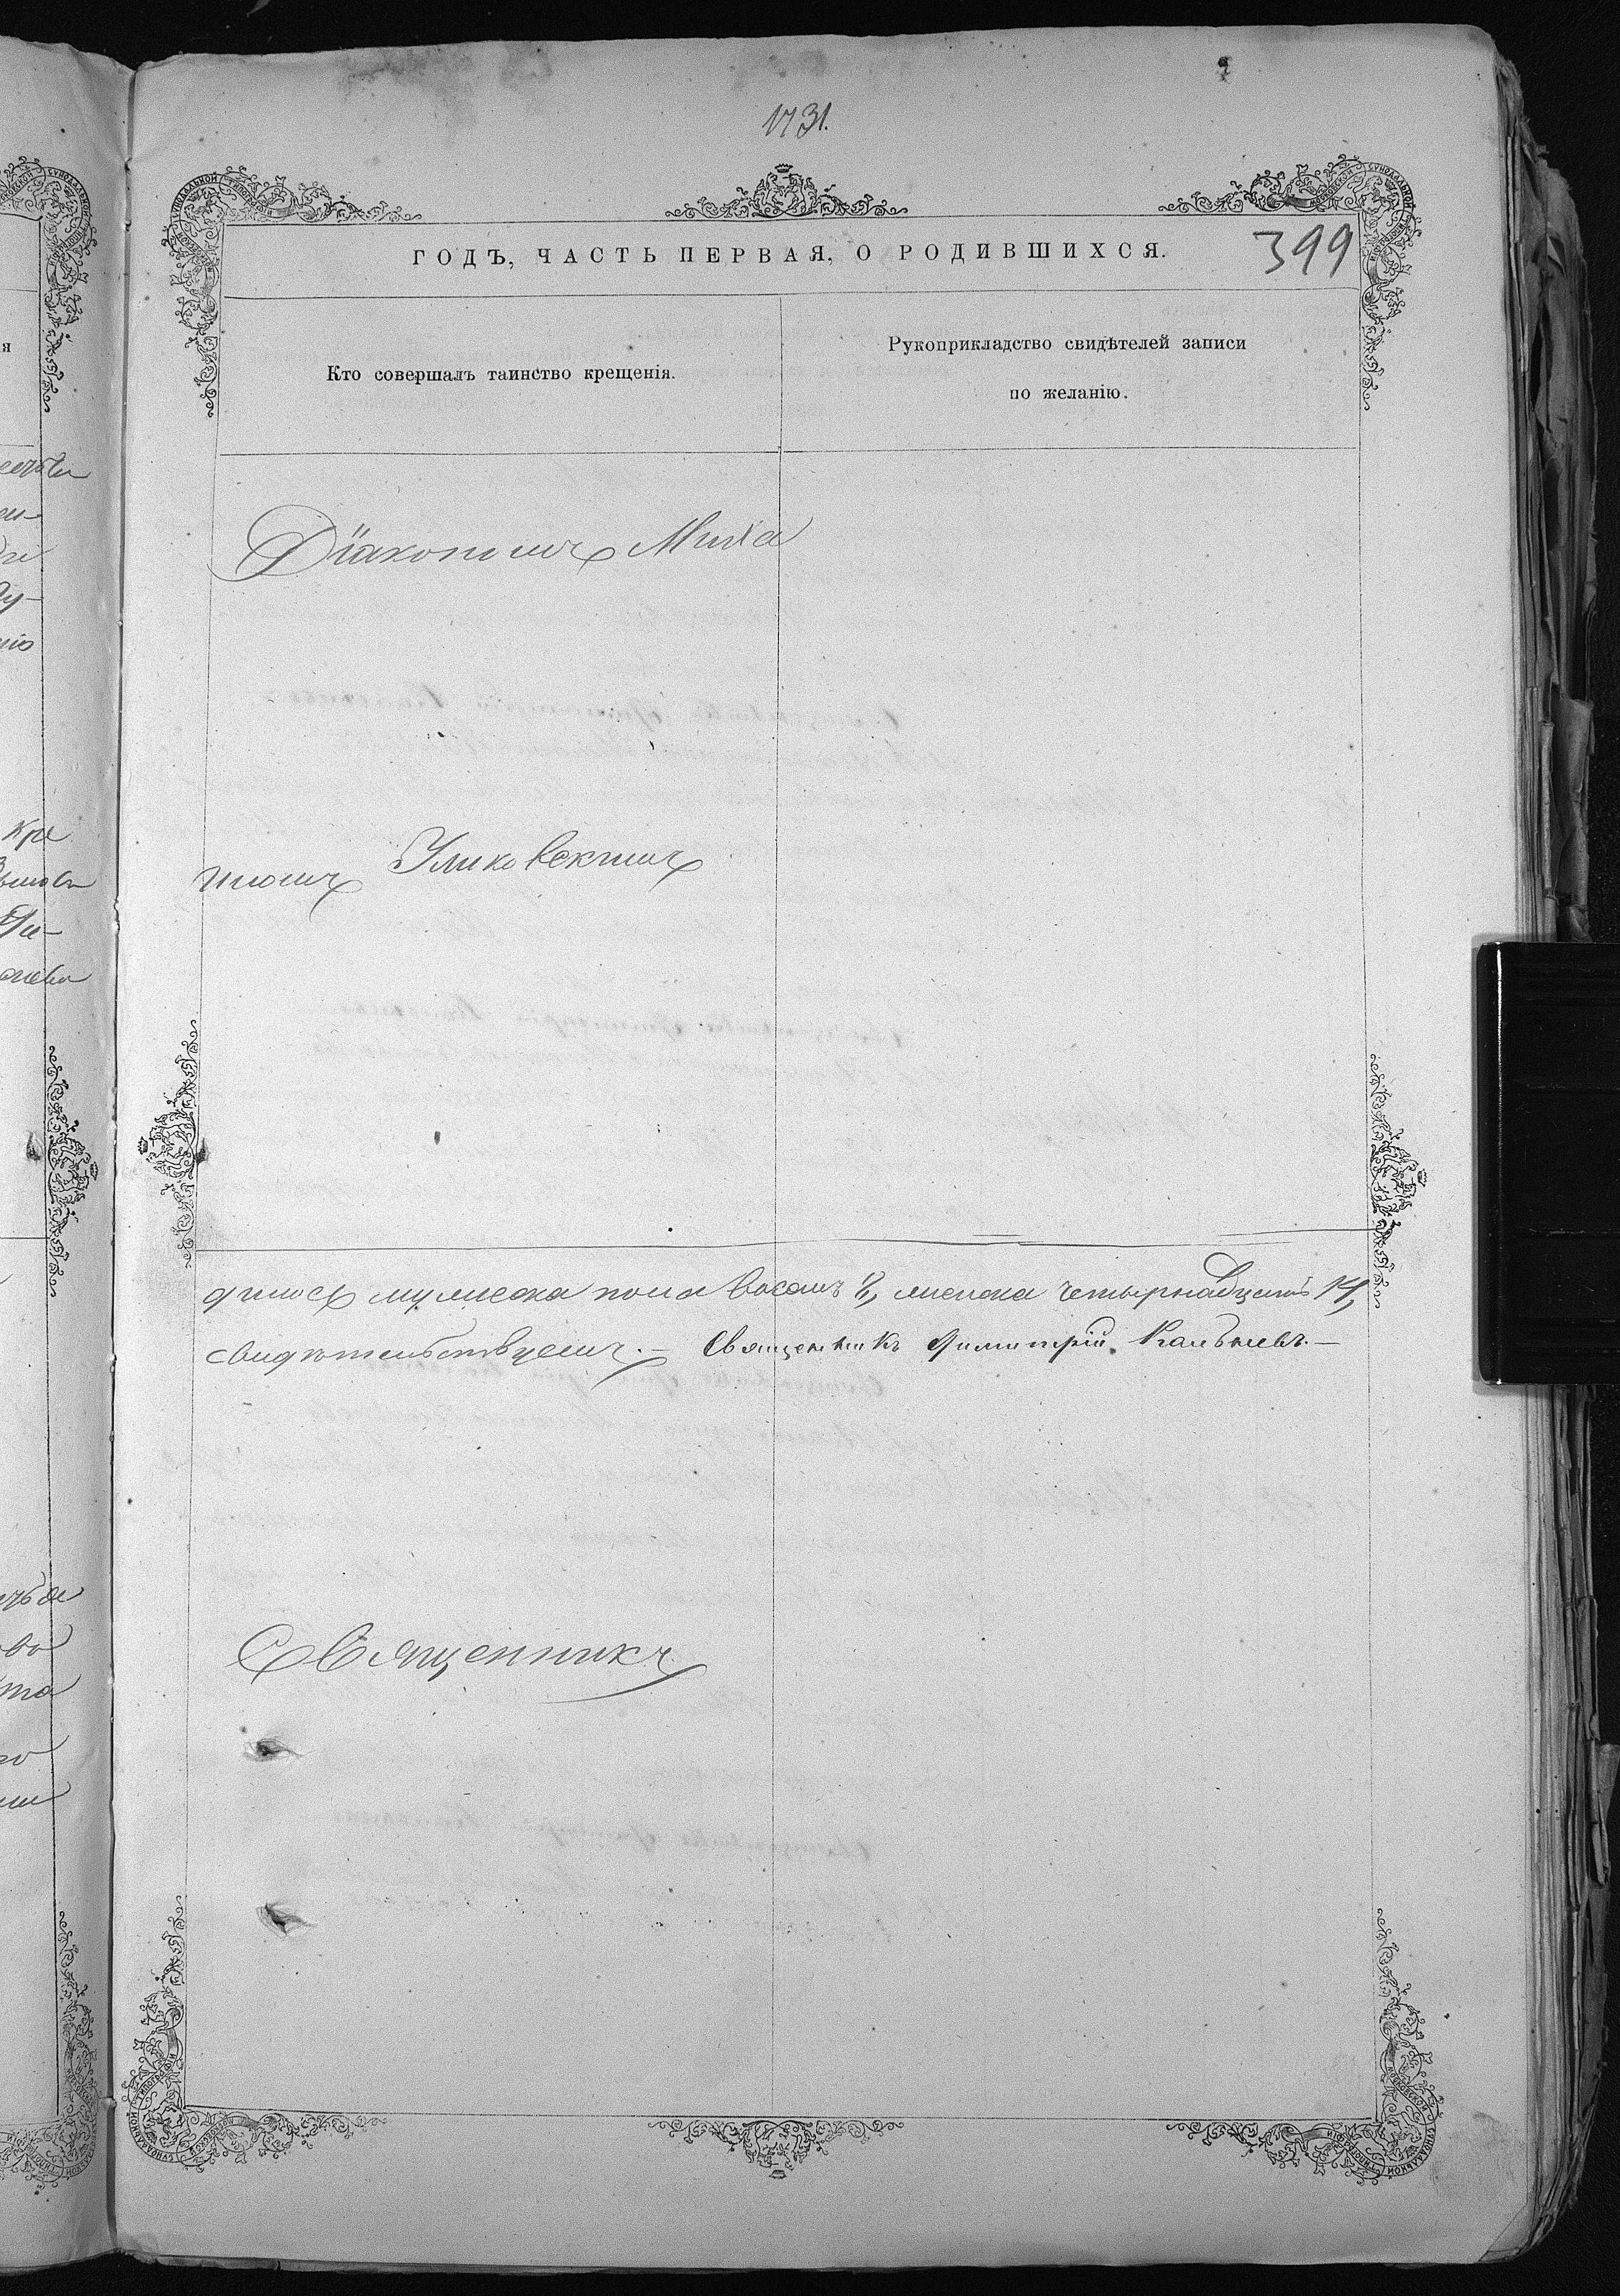 1731.
ГОДЪ, ЧАСТЬ ПЕРВАЯ, О РОДИВШИХСЯ.
399
Кто совершалъ таинство крещенія.
Рукоприкладство свидѣтелей записи
по желанію.
Діакономъ Миха
иломъ
дилось мужеска пола восемь 8, женска четырнадцать 14,
свидѣтельствуемъ. — Священникъ Димитрій
Священникъ